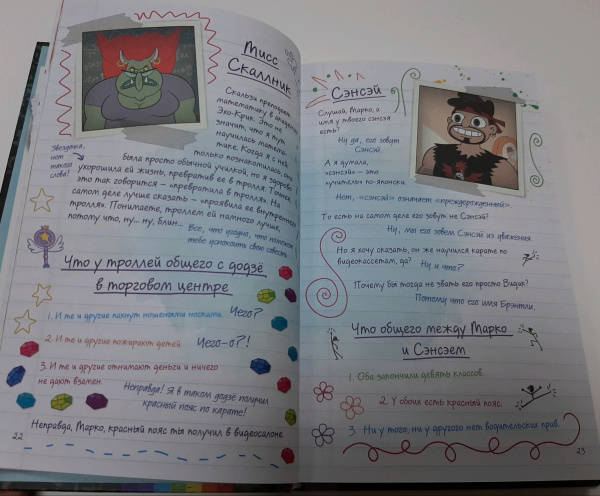 Мисс
Скаллник
Скальза преподаёт
математику в академии
Эхо-Крик. Это не
значит, что я тут
научилась матема-
тике. Когда я с ней
только познакомилась, она
была просто обычной училкой, но я здорово
ухорошила ей жизнь, превратив её в тролля. Точнее,
это так говорится – «превратила в тролля». На
самом деле лучше сказать – «проявила её внутреннего
тролля». Понимаете, троллем ей намного лучше,
потому что, ну... ну, блин...
Звёздочка,
нет
такого
слова!
Всё, что угодно, что поможет
тебе успокоить свою совесть.
Что у троллей общего с додзё
в торговом центре
1. И те и другие пахнут ношеными носками.
Чего?
2. И те и другие пожирают детей.
Чего-о?!
3. И те и другие отнимают деньги и ничего
не дают взамен.
Неправда! Я в таком додзё получил
красный пояс по карате!
Неправда, Марко, красный пояс ты получил в видеосалоне.
22
Сэнсэй
Слушай, Марко, а
имя у твоего сэнсэя
есть?
Ну да, его зовут
Сэнсэй.
А я думала,
«сэнсэй» – это
«учитель» по-японски.
Нет, «сэнсэй» означает «прежде рождённый».
То есть на самом деле его зовут не Сэнсэй?
Ну, мы его зовём Сэнсэй из уважения.
Но я хочу сказать, он же научился карате по
видеокассетам, да?
Ну и что?
Почему бы тогда не звать его просто Видик?
Потому что его имя Брэнтли.
Что общего между Марко
и Сэнсэем
1. Оба закончили девять классов.
2. У обоих есть красный пояс.
3. Ни у того, ни у другого нет водительских прав.
23